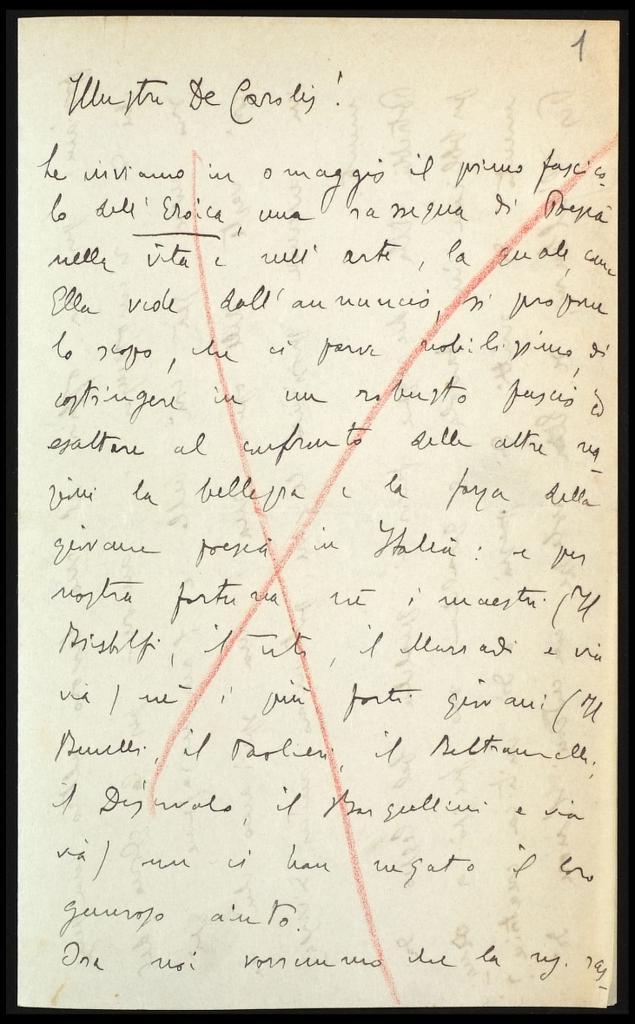 1
Illustre De Carolis!
Le inviamo in omaggio il primo fascico-
lo dell'Eroica, una rassegna di Poesia
nella vita e nell'arte, la quale, come
Ella vede dall'annuncio, si propone
lo scopo, che ci parve nobilissimo, di
costringere in un robusto fascio ed
esaltare al confronto delle altre na-
zioni la bellezza e la forza della
giovane poesia in Italia: e per
nostra fortuna nè i maestri (Il
Bistolfi, il , il Marradi e via
via) nè i più forti giovani (Il
Benelli, il Paolieri, il Beltramelli,
il , il Bargellini e via
via) non ci han negato il loro
generoso aiuto.
Ora noi vorremmo che la ns. ras-